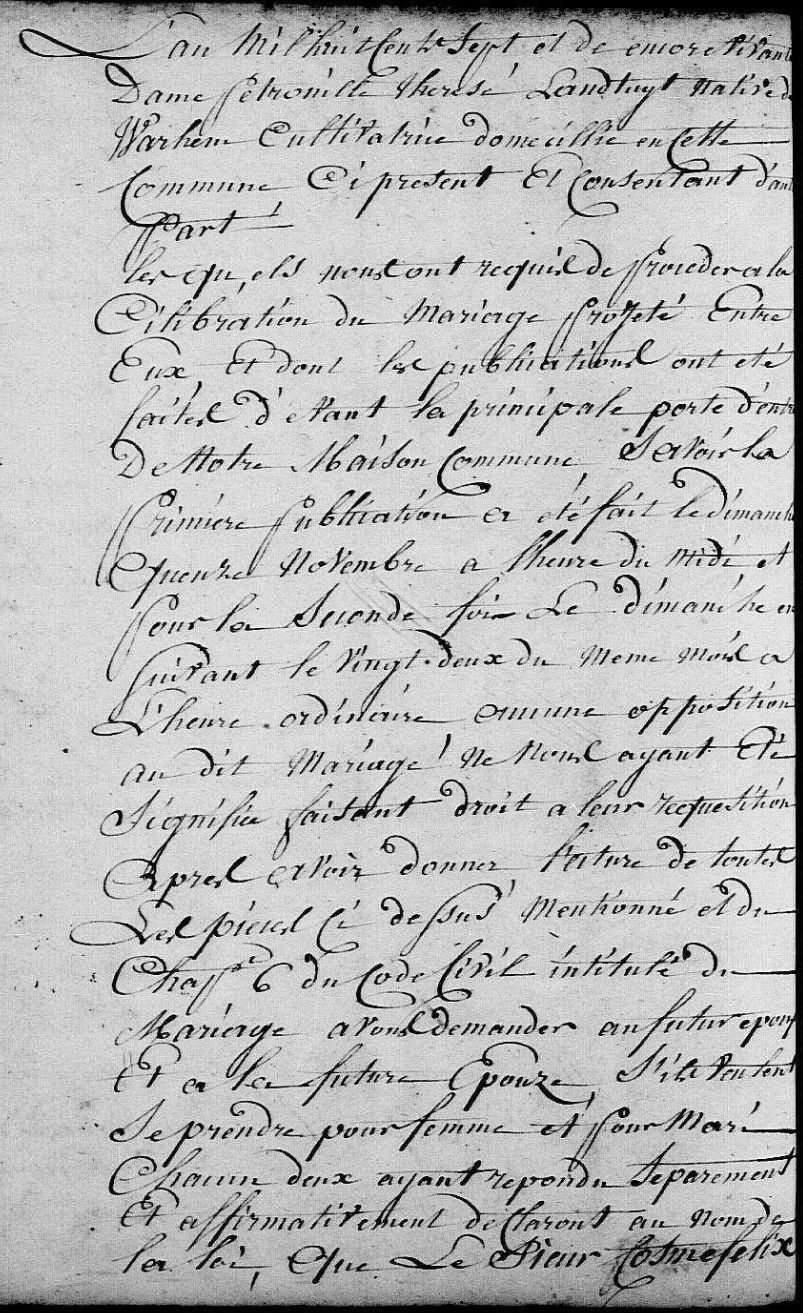 L'an Mil huit Cent Sept et de encore vivante
Dame Petronille therese Landtuyt native de
Warhem Cultivatrice domecillie en Cette
Commune Ci present Et Consentant d'aut
Part
les qu,els nous ont requis de proceder a la
Célébration du Mariage projeté Entre
Eux, et dont les publications ont eté
faites d'evant la principale porte d'entré
De Notre Maison Commune, Savoir la
Primiere publication a été fait le dimanche
Quenze Novembre a l'heure du midi et
Pour la Seconde fois Le dimanche en
Suivant le vingt-deux du Meme Mois a
L'heure ordinaire aucune opposition
au dit Mariage Ne Nous ayant Eté
Signifiée faisant droit a leur requesition
Apres avoir donner l'ecture de toutes
Les pieces Ci dessus Mentionné et du
Chapre 6 du Code Civil intitulé du
Mariage avons demander au futur epoux
Et a la future Epouze, S'ils veulent
Se prendre pour femme et pour Mari
Chacun deux ayant repondu Separement
Et affirmativement declarons au nom de
la loi, Que Le Sieur Cosme felix